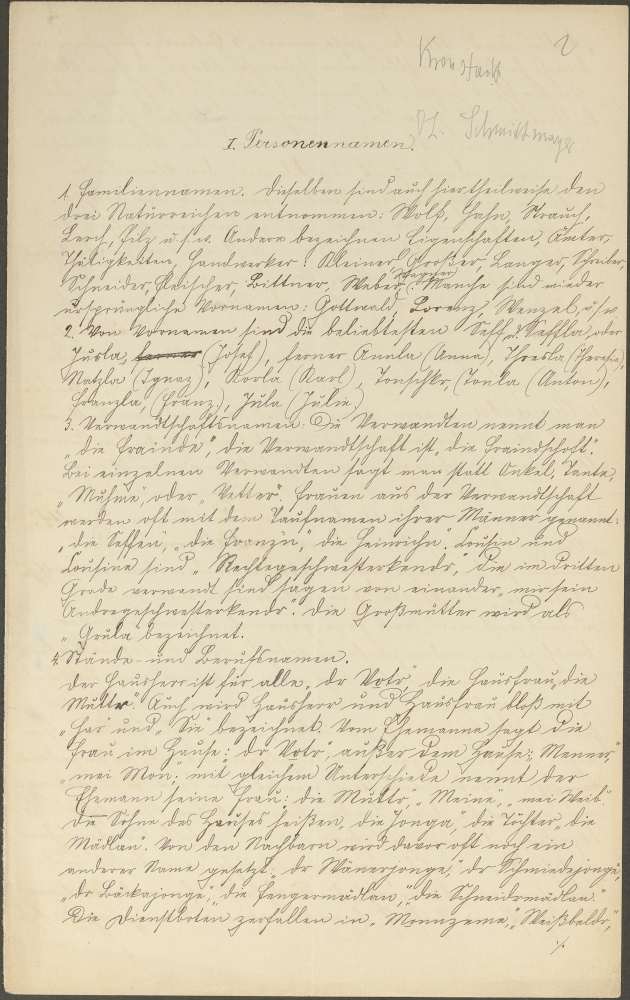 2
Kronstadt
I. Personennamen.
1. Familiennamen. Dieselben sind auch hier theilweise den
drei Naturreichen entnommen: Wolf, Hahn, Strauch,
Lerch, Pilz u.s.w. Andere bezeichnen Eigenschaften, Ämter,
Thätigkeiten, Handwerker: Kleiner, Großer, Langer, Schneider, Fleischer, Bittner, Weber. Manche sind wieder
ursprüngliche Vornamen: Gottwald, Lorenz, Wenzel, u.s.w.
2. Von Vornamen sind die beliebtesten Seff, u. Seffla, oder
Jusla, (Josef), ferner Annla (Anna), Thresla (Theresia),
Natzla (Ignaz), Korla (Karl), Tonla (Anton),
Franzla, (Franz), Jula (Julie)
3. Verwandtschaftsnamen: Die Verwandten nennt man
"die Frainde", die Verwandtschaft ist "die Fraindschoft".
Bei einzelnen Verwandten sagt man statt Onkel, Tante,
"Muhme", oder "Vetter". Frauen aus der Verwandtschaft
werden oft mit dem Taufnamen ihrer Männer genannt:
"die Seffen", "die Franzn", die Heinrichn". Cousin und
Cousine sind "Rechtegeschwesterkendr", die im dritten
Grade verwandt sind sagen von einander, mir sein
"Andregeschwesterkendr". Die Großmutter wird als
"Grula" bezeichnet.
4. Stände- und Berufsnamen.
Der Hausherr ist für alle "dr Votr" die Hausfrau "die
Mutter". Auch wird Hausherr und Hausfrau bloß mit
"Har" und "Sie" bezeichnet. Vom Ehemanne sagt die
Frau im Hause: "dr Votr", außer dem Hause: "Menner",
"mei Mon"; mit gleichem Unterschiede nennt der
Ehemann seine Frau: die Muttr", "Meine", "mei Weib".
Die Söhne des Hauses heißen "die Jonga", die Töchter "die
Mädlan". Von den Nachbarn wird davor oft noch ein
anderer Name gesetzt "dr Wänerjonge", "dr Schmiedejonge",
"dr Bäckajonge", "die Fengermädlan", "die Schneidrmädlan".
Die Dienstboten zerfallen in "Monnzeme", "Weißbeldr",
./.